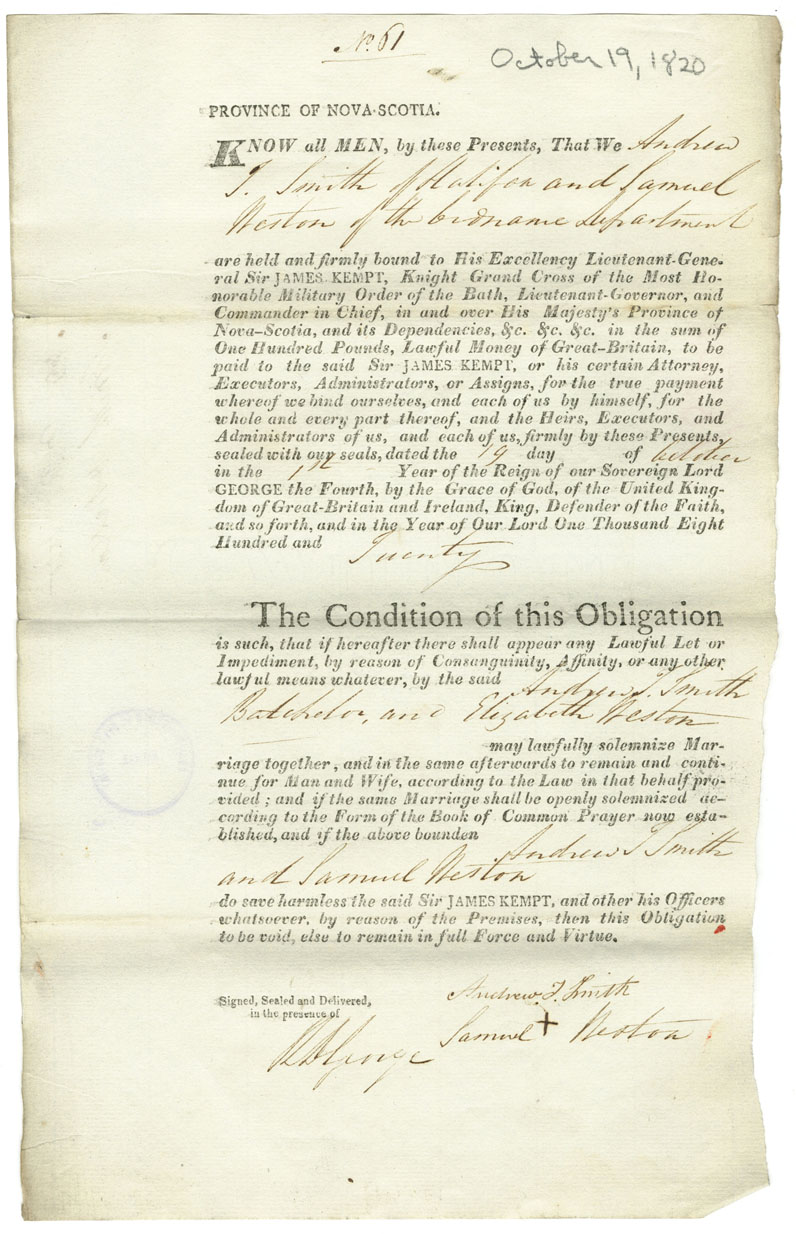 No. 61
October 19, 1820
PROVINCE OF NOVA-SCOTIA.
KNOW all MEN, by these Presents, That We Andrew
T. Smith of Halifax and Samuel
Weston of the Ordnance Department
are held and firmly bound to His Excellency Lieutenant-Gene-
ral Sir JAMES KEMPT, Knight Grand Cross of the Most Ho-
norable Military Order of the Bath, Lieutenant-Governor, and
Commander in Chief, in and over His Majesty's Province of
Nova-Scotia, and its Dependencies, &c. &c. &c. in the sum of
One Hundred Pounds, Lawful Money of Great-Britain, to be
paid to the said Sir JAMES KEMPT, or his certain Attorney,
Executors, Administrators, or Assigns, for the true payment
whereof we bind ourselves, and each of us by himself, for the
whole and every part thereof, and the Heirs, Executors, and
Administrators of us, and each of us, firmly by these Presents,
sealed with our seals, dated the 19 day of October
in the 1st Year of the Reign of our Sovereign Lord
GEORGE the Fourth, by the Grace of God, of the United King-
dom of Great-Britain and Ireland, King, Defender of the Faith,
and so forth, and in the Year of Our Lord One Thousand Eight
Hundred and Twenty
The Condition of this Obligation
is such, that if hereafter there shall appear any Lawful Let or
Impediment, by reason of Consanguinity, Affinity, or any other
lawful means whatever, by the said Andrew T. Smith
Batchelor, and Elizabeth Weston
may lawfully solemnize Mar-
riage together, and in the same afterwards to remain and conti-
nue for Man and Wife, according to the Law in that behalf pro-
vided; and if the same Marriage shall be openly solemnized ac-
cording to the Form of the Book of Common Prayer now esta-
blished, and if the above bounden Andrew T Smith
and Samuel Weston
do save harmless the said Sir JAMES KEMPT, and other his Officers
whatsoever, by reason of the Premises, then this Obligation
to be void, else to remain in full Force and Virtue.
Signed, Sealed and Delivered,
in the presence of
Andrew. T. Smith
Samuel + Weston
George